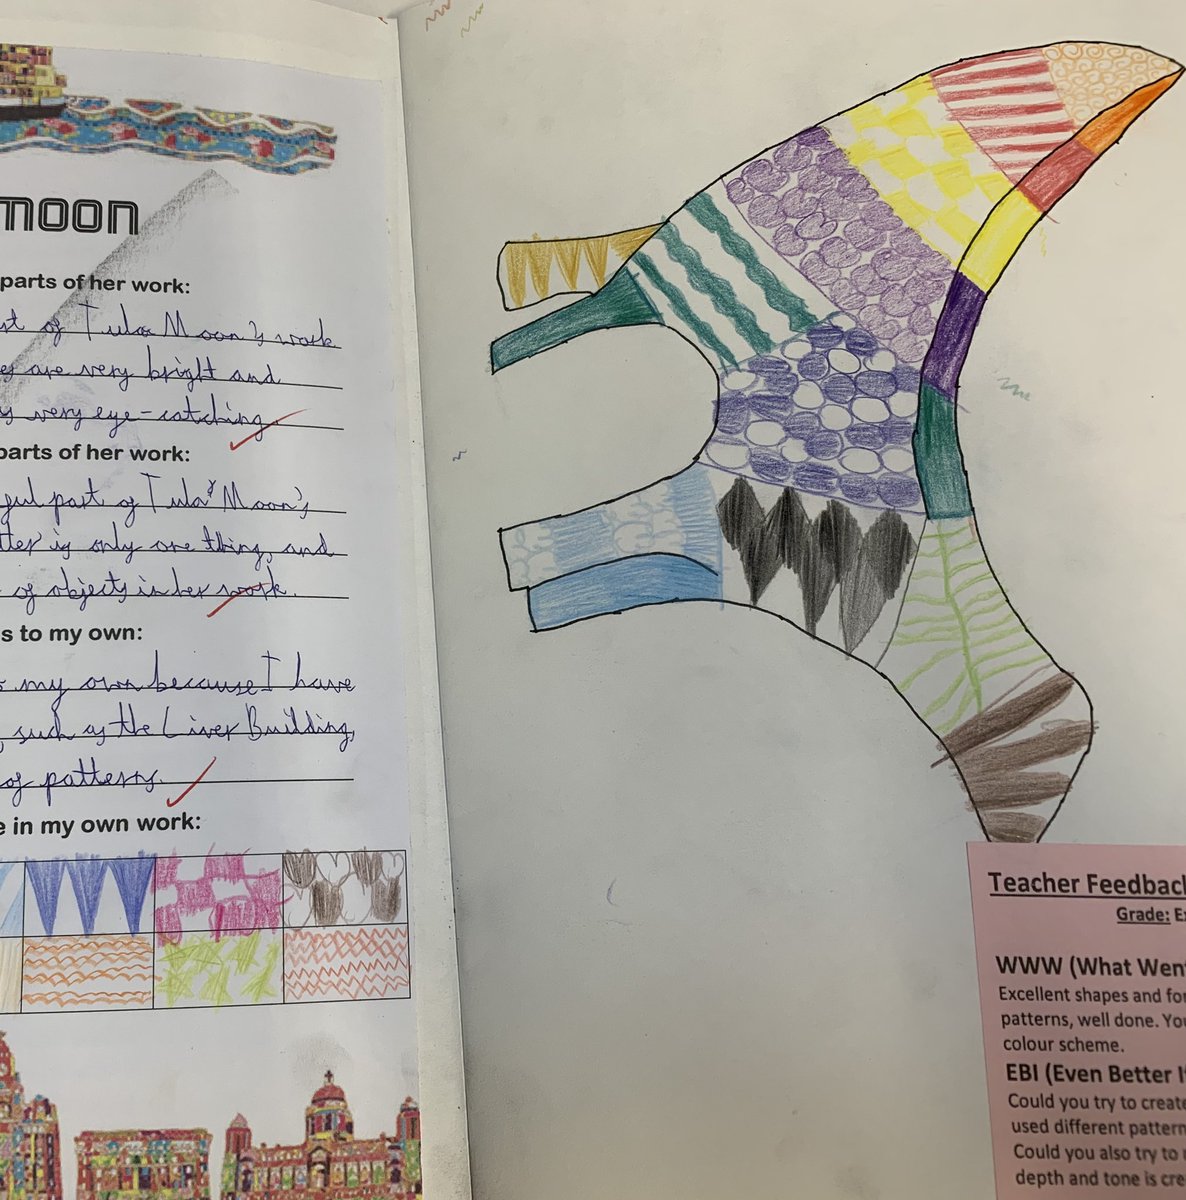 moon
parts of her work:
st of Tula Moon's work
are very bright and
very eye-catching.
parts of her work:
ful part of Tula Moon's
is only one thing, and
of objects in her work.
s to my own:
my own because I have
such as the Liver Building,
of patterns.
e in my own work:
Teacher Feedback
Grade: Ex
WWW (What Went
Excellent shapes and for
patterns, well done. You
colour scheme.
EBI (Even Better If
Could you try to create
used different pattern
Could you also try to
depth and tone is cre